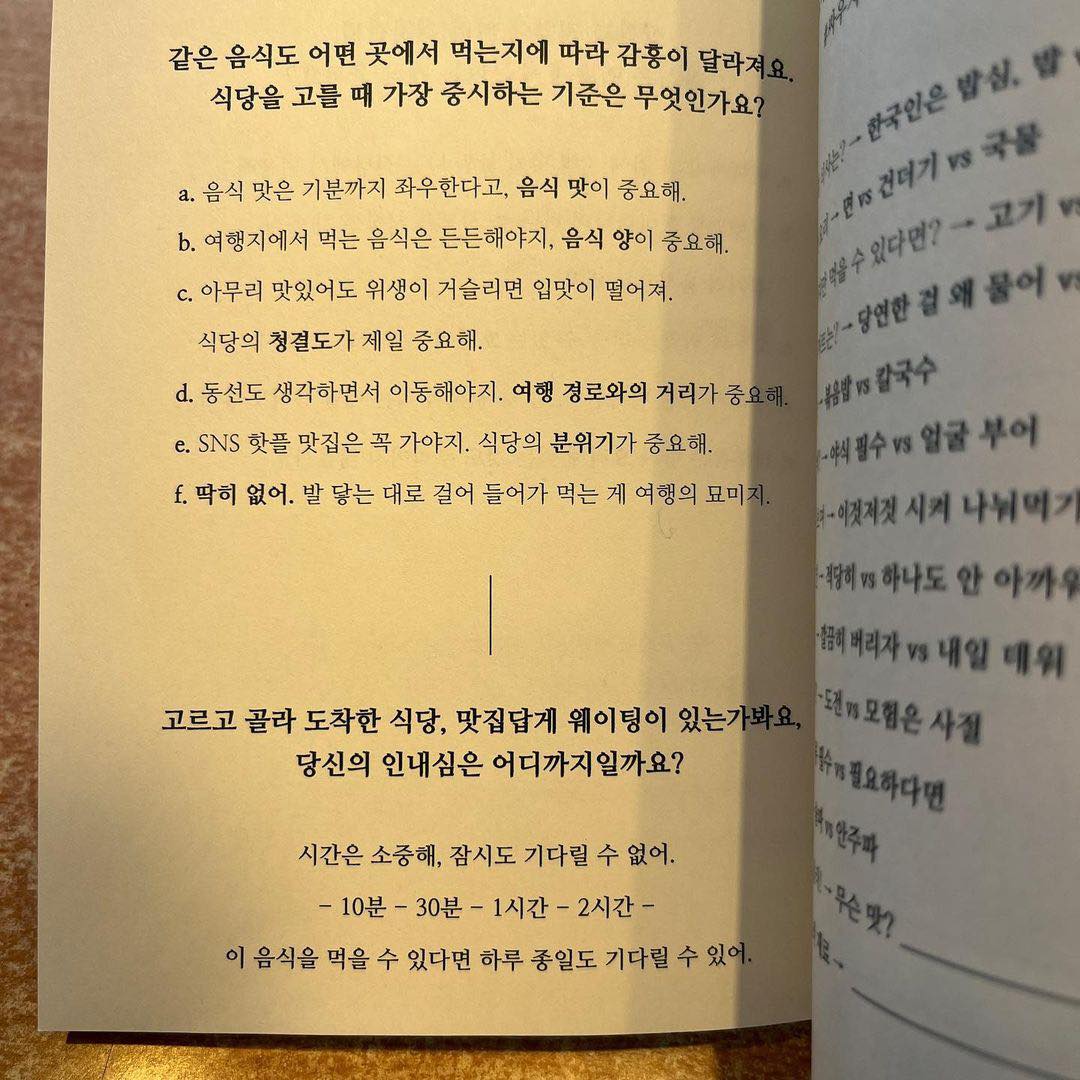 같은 음식도 어떤 곳에서 먹는지에 따라 감흥이 달라져요.
식당을 고를 때 가장 중시하는 기준은 무엇인가요?
a. 음식 맛은 기분까지 좌우한다고, 음식 맛이 중요해.
b. 여행지에서 먹는 음식은 든든해야지, 음식 양이 중요해.
c. 아무리 맛있어도 위생이 거슬리면 입맛이 떨어져.
식당의 청결도가 제일 중요해.
d. 동선도 생각하면서 이동해야지. 여행 경로와의 거리가 중요해.
e. SNS 핫플 맛집은 꼭 가야지. 식당의 분위기가 중요해.
f. 딱히 없어. 발 닿는 대로 걸어 들어가 먹는 게 여행의 묘미지.
고르고 골라 도착한 식당, 맛집답게 웨이팅이 있는가봐요,
당신의 인내심은 어디까지일까요?
시간은 소중해, 잠시도 기다릴 수 없어.
– 10분 – 30분 – 1시간 – 2시간 –
이 음식을 먹을 수 있다면 하루 종일도 기다릴 수 있어.
→ 한국인은 밥심, 밥
→ 면 vs 건더기 vs 국물
먹을 수 있다면? → 고기 vs
→ 당연한 걸 왜 물어 vs
→ 볶음밥 vs 칼국수
→ 야식 필수 vs 얼굴 부어
→ 이것저것 시켜 나눠먹기
→ 적당히 vs 하나도 안 아까워
→ 깔끔히 버리자 vs 내일 데워
→ 도전 vs 모험은 사절
필수 vs 필요하다면
vs 안주파
→ 무슨 맛?
→